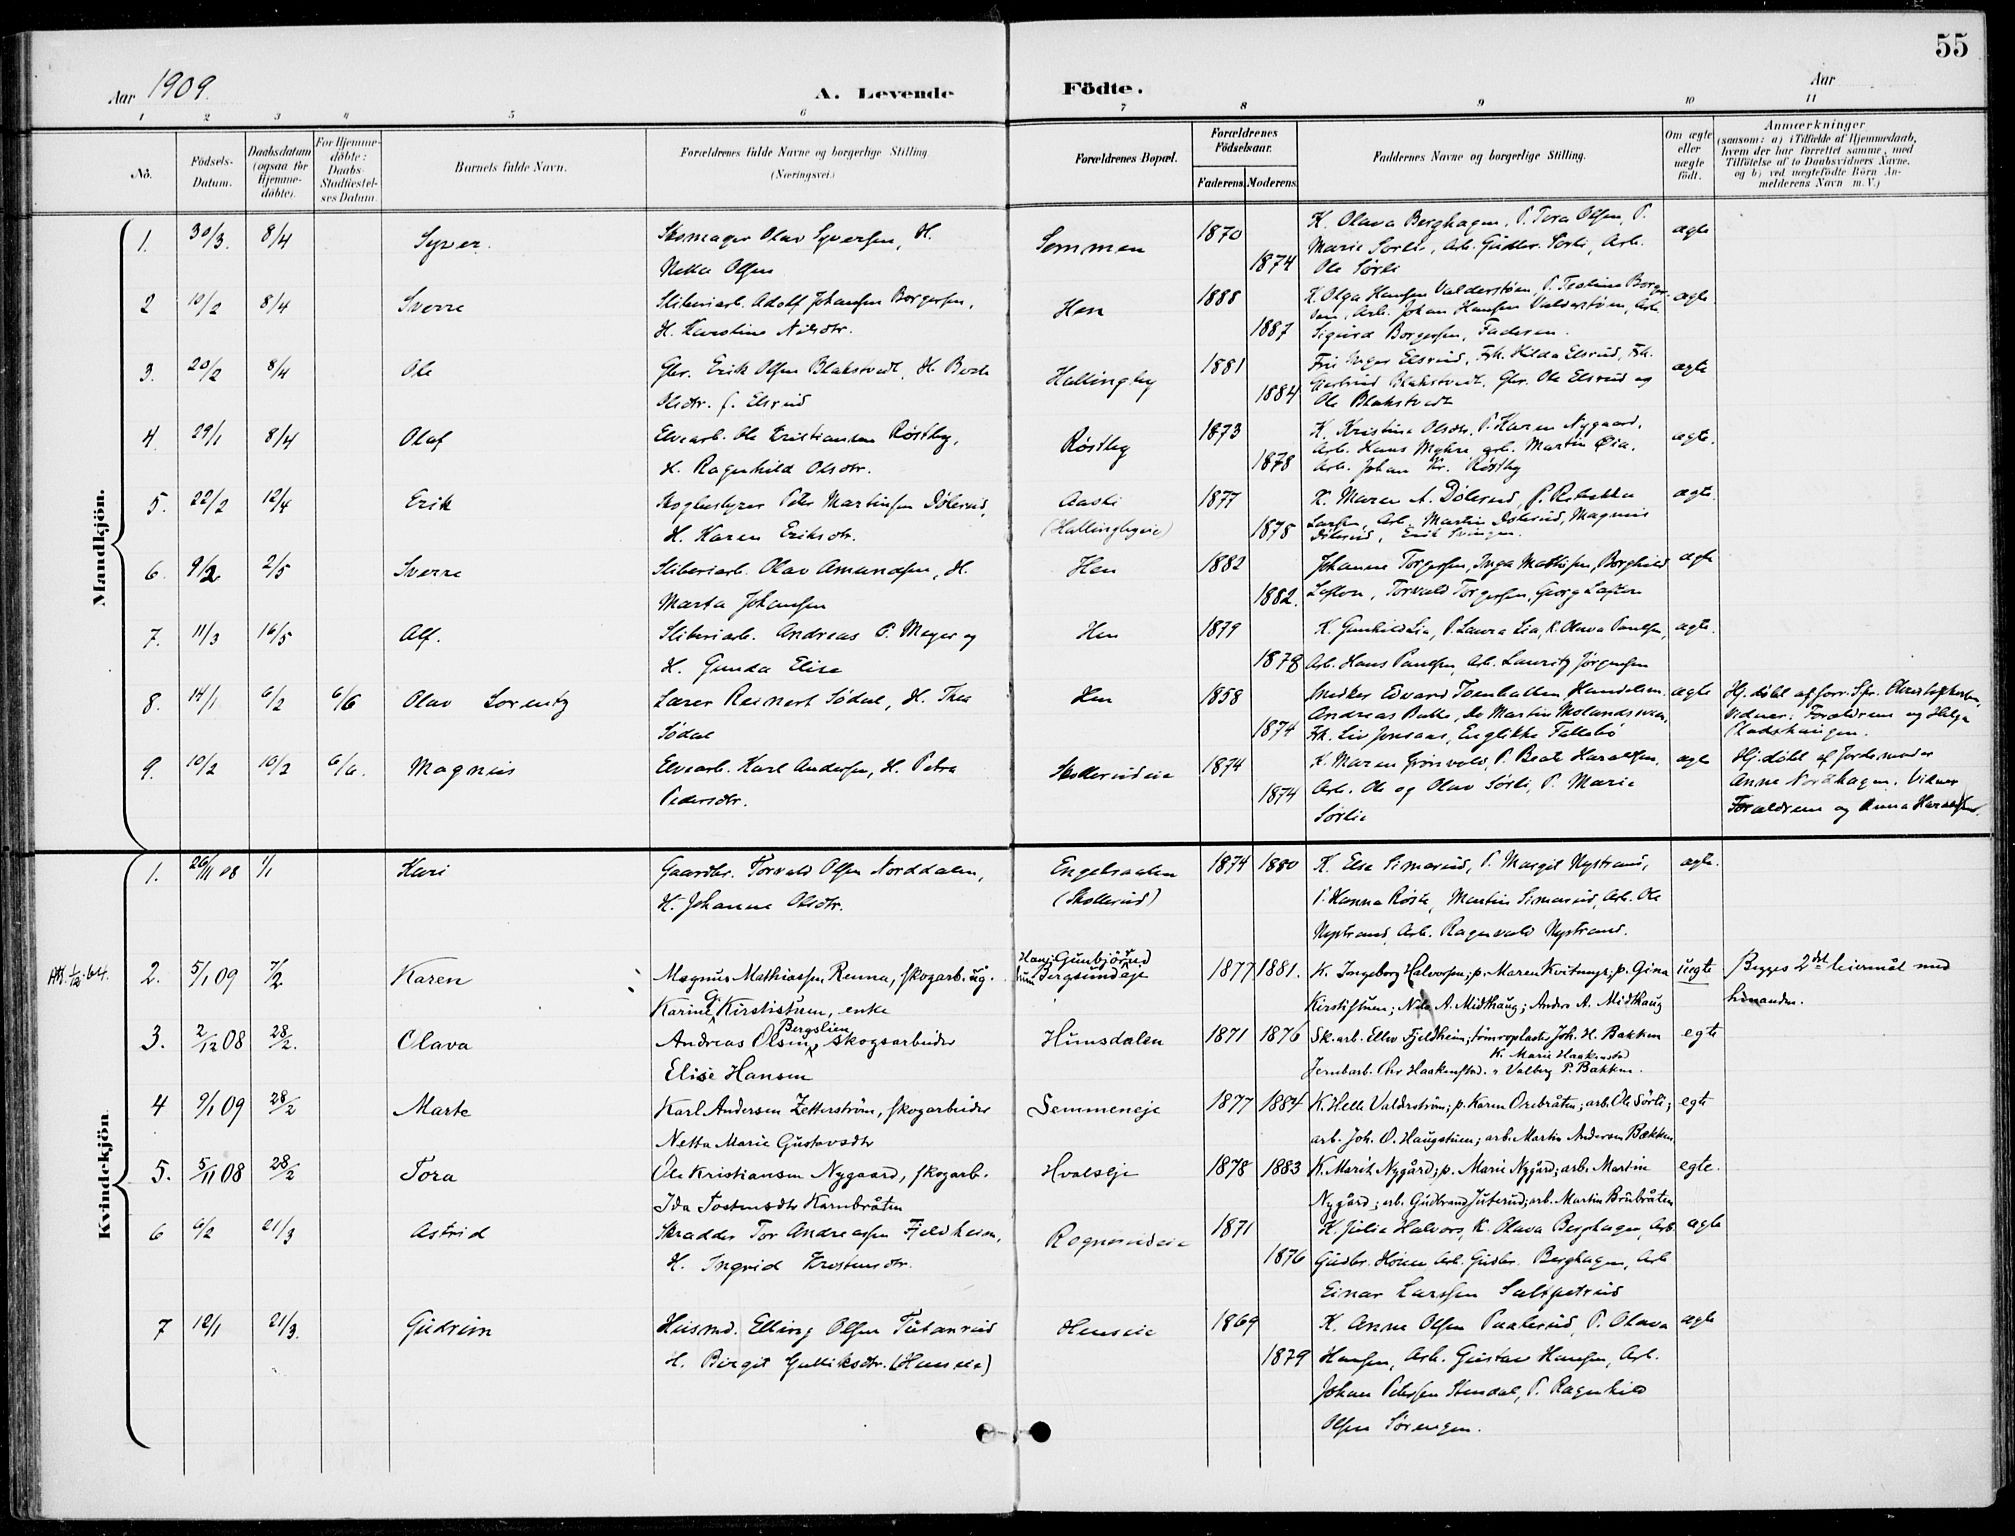 55
Aar 1909. A. Levende Födte. Aar
1 2 3 4 5 6 7 8 9 10 11
No. Födsels-Datum. Daabsdatum (ogsaa for Hjemmedöbte). For Hjemmedöbte: Daabs-Stadfæstelses Datum. Barnets fulde Navn. Forældrenes fulde Navne og borgerlige Stilling. (Næringsvei.) Forældrenes Bopæl. Forældrenes Födselsaar. Faderens. Moderens. Faddernes Navne og borgerlige Stilling. Om ægte eller uægte födt. Anmærkninger (saasom: a) i Tilfælde af Hjemmedaab, hvem der har forrettet samme, med Tilföielse af to Daabsvidners Navne, og b) ved uægtefödte Börn Anmelderens Navn m. V.)
Mandkjön.
1. 30/3. 8/4 Syver. Skomager Olav Syversen, H. Semmen 1870 K. Olava Berghagen, P. Tora Olsen, P. ægte
Netta Olsen 1874 Marie Sørli, Arb. Gudbr. Sørli, Arb.
Ole Sørli
2 10/2 8/4 Sverre Sliberiarb. Adolf Johansen Borgersen, Hen 1888 K. Olga Hansen Valderstøen, P. ægte
H. Karstine Nilsdtr. 1887 Arb. Johan Hansen Valderstøen, Arb.
Sigurd Borgersen, Faderen.
3. 20/2 8/4 Ole Gbr. Erik Olsen Blakstvedt, H. Hallingby 1881 Fru Inger Elsrud, Frk. Hilda Elsrud, Frk. ægte
Olsdtr. f. Elsrud 1884 Gertrud Blakstvedt, Gbr. Ole Elsrud og
Ole Blakstvedt
4. 29/1 8/4 Olaf Elvearb. Ole Kristiansen Røstby, Røstby 1873 K. Kristine Olsdtr. P. Karen Nygaard, ægte.
H. Ragnhild Olsdtr. 1878 Arb. Hans Myhre, arb. Martin Øia,
Arb. Johan Kr. Røstby
5. 22/2 12/4 Erik Skogbestyrer Peter Martinsen Dölerud, Aasli 1877 K. Maren A. Dölerud, P. Rebekka ægte.
H. Karen Eriksdtr. (Hallingbyeie) 1878 Larsen, Arb. Martin Dölerud, Magnus
Dölerud, Erik Svingen.
6. 9/2 2/5 Sverre Sliberiarb. Olav Amundsen, H. Hen 1882 Johanne Torgersen, Inga Mathisen, Borghild ægte
Marta Johansen 1882. Lofton, Torvald Torgersen, Georg Lofton
7. 11/3 16/5 Alf. Sliberiarb. Andreas P. Meyer og Hen 1879 K. Gunhild Lia, P. Laura Lia, K. Olava Paulsen, ægte.
H. Gunda Elise 1878 Arb. Hans Paulsen, Arb. Lauritz Jørgensen
8. 14/1 6/2 6/6 Olav Lorentz Lærer Reinert Södal, H. Thea Hen 1858 Snedker Edvard Toenhatten, Handelsm. ægte Hj. døbt af forr. Spr. Christophersen,
Södal 1874 Andreas Bakke, Do Martin Molandsveen, Vidner: Forældrene og Helga
Frk. Liv Jonsaas, Englikke Tallebö
9. 10/2 10/2 6/6. Magnus Elvearb. Karl Andersen, H. Petra Skollerudeie 1874 K. Maren Grönvold, P. Beate Haraldsen, ægte Hj. døbt af Jordemoder
Pedersdtr. 1874 Arb. Ole og Olav Sörli, P. Marie Anne Nordhagen. Vidner
Sörlie Forældrene og Anna Haraldsen.
Kvindekjön.
1. 26/11 08 1/1 Kari Gaardbr. Torvald Olsen Norddalen, Engelsaalen 1874 1880 K. Else Simarud, P. Margit Nystrand, ægte.
H. Johanne Olsdtr. (Skollerud) P. Hanna Röste, Martin Simarud, Arb. Ole
Nystrand, Arb. Ragnvald Nystrand.
1/12.64. 2. 5/1 09 7/2 Karen Magnus Mathiassen Renna, skogarb. ug. Han: Gunbjörnrud 1877 1881. K. Ingeborg Halvorsen; p. Maren Kvitmyr; p. Gina uegte Begges 2det leiermål med
Karine G. Kirstistuen, enke hun Bergsundeje Kirstistuen; Nils A. Midthaug; Anders A. Midthaug hinanden.
3. 2/12 08 28/2. Olava Andreas Olsen Bergslien, skogsarbeider Hunsdalen 1871 1876 Sk.arb. Ellev Fjeldheim; tömroplasts Joh. H. Bakken egte
Elise Hansen Jernbarb. Chr. Haakenstad. K. Marie Haakenstad " Valborg P. Bakken.
4 9/1 09 28/2 Marte Karl Andersen Zetterström, skogarbeider Semmeneje 1877 1884 K. Helle Valderström; p. Karen Orebråten; arb. Ole Sörli; egte
Netta Marie Gustavsdtr arb. Joh. O. Haugstuen; arb. Martin Andersen Bækken
5. 5/11 08 28/2 Tora Ole Kristiansen Nygaard, skogarb. Hvalseje 1878 1883 K. Marit Nygård; p. Marie Nygård; arb. Martin egte.
Ida Tostensdtr Karnbråten Nygård; arb. Gudbrand Juterud; arb. Martin Brubråten
6 6/2 21/3 Astrid Skrædder Tor Andreassen Fjeldheim, Rognerudeie 1871 K. Julia Halvors, K. Olava Berghagen, Arb. ægte
H. Ingrid Trostensdtr. 1876 Gudbr. Hönen Arb. Gudbr. Berghagen, Arb
Einar Larssen Saltpetrud
7 12/1 21/3. Gudrun Husmd. Elling Olsen Tutanrud Henseie 1869 K. Anne Olsen Paalerud, P. Olava ægte
H. Birgit Gulliksdtr. (Henseie) 1879 Hansen, Arb. Gustav Hansen, Arb.
Johan Petersen Stendal, P. Ragnhild
Olsen Sörengen.